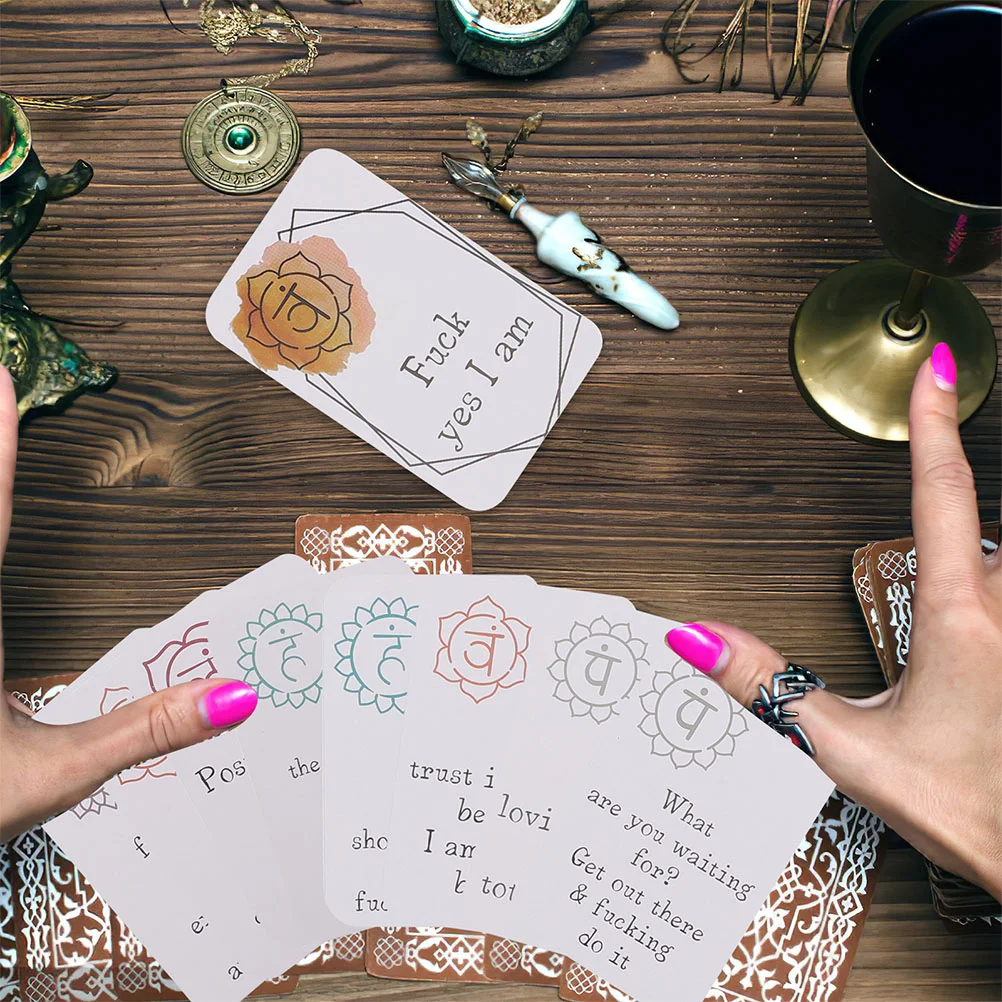 Fuck
yes I am
Pos
the
f
sho
fuc
trust i
be lovi
I am
k tot
What
are you waiting
for?
Get out there
& fucking
do it